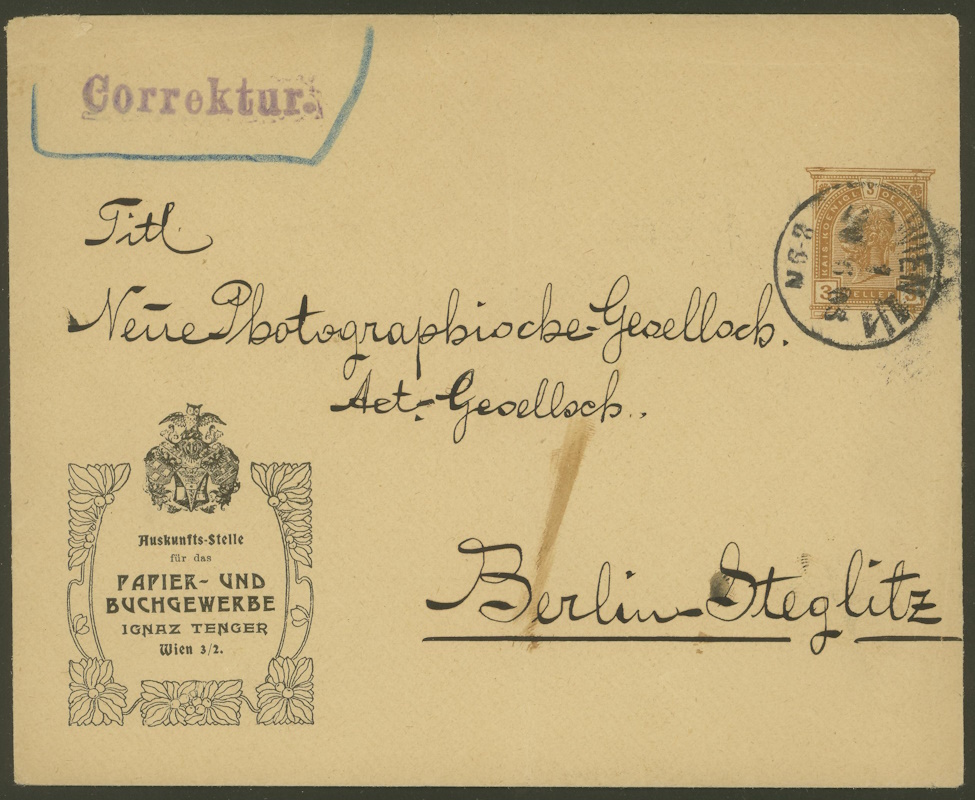 Correktur.
Titl
Neue Photographische-Gesellsch.
Act.-Gesellsch.
Berlin-Steglitz
3
WIEN 1/1
Auskunfts-Stelle
für das
PAPIER- UND
BUCHGEWERBE
IGNAZ TENGER
Wien 3/2.